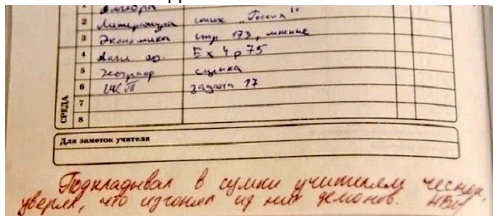 1 Алгебра
2 Литература стих „Россия"
3 Экономика стр 173, мнение
4 Англ яз. Ex 4 p 75
5 географ оценка
6 задача 17
7
8
СРЕДА
Для заметок учителя
Подкладывал в сумки учителям чеснок,
уверял, что изгонял из них демонов.